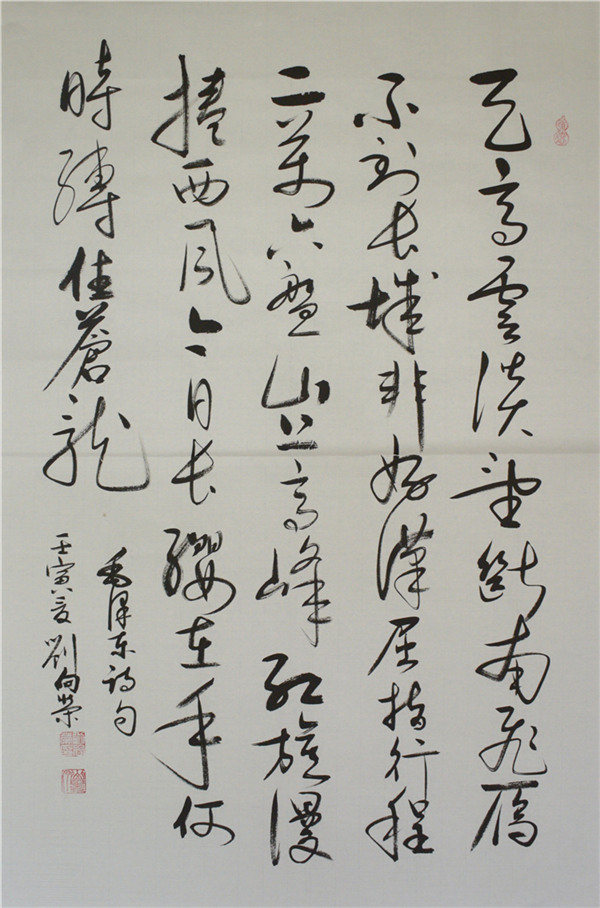 天高雲淡望斷南飛雁
不到長城非好漢屈指行程
二萬六盤山上高峰紅旗漫
捲西風今日長纓在手何
時縛住蒼龍
毛澤東詩句
壬寅夏劉向榮